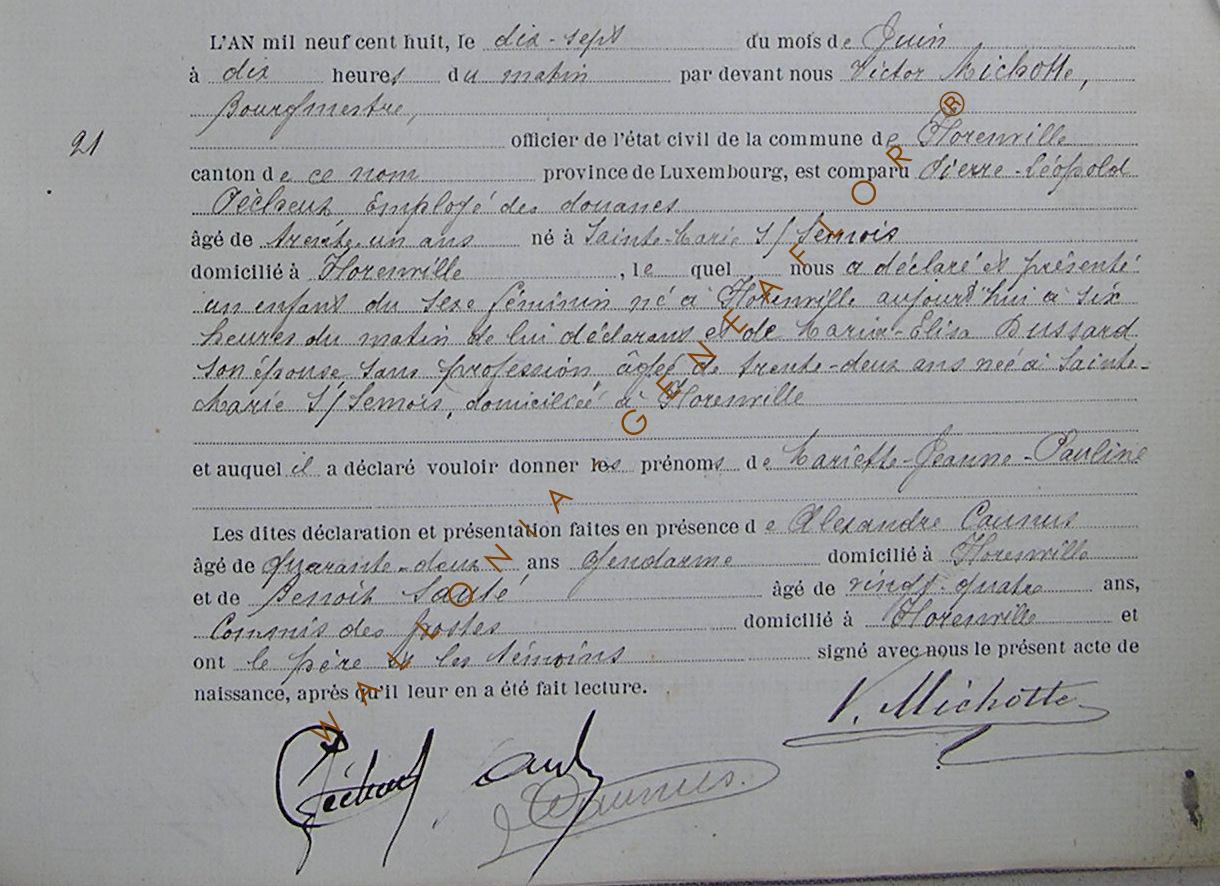 L'AN mil neuf cent huit, le dix-sept du mois de Juin
à dix heures du matin par devant nous Victor Michotte,
Bourgmestre,
21
officier de l'état civil de la commune de Florenville
canton de ce nom province de Luxembourg, est comparu Pierre-Léopold
Pècheux Employé des douanes
âgé de trente-un ans né à Sainte-Marie S/ Semois
domicilié à Florenville, le quel nous a déclaré et présenté
un enfant du sexe féminin né à Florenville aujourd'hui à six
heures du matin de lui déclarant et de Maria-Elisa Dussard
son épouse sans profession âgée de trente-deux ans née à Sainte-
Marie S/ Semois, domiciliée à Florenville
et auquel il a déclaré vouloir donner les prénoms de Mariette-Jeanne-Pauline
Les dites déclaration et présentation faites en présence de Alexandre Caunus
âgé de Quarante-deux ans Gendarme domicilié à Florenville
et de Benoit Sauté âgé de vingt-quatre ans,
Commis des postes domicilié à Florenville et
ont le père et les témoins signé avec nous le présent acte de
naissance, après qu'il leur en a été fait lecture.
V. Michotte
Pècheux Sauté
Caunus.
WALLONIA GENEAFLOR ®